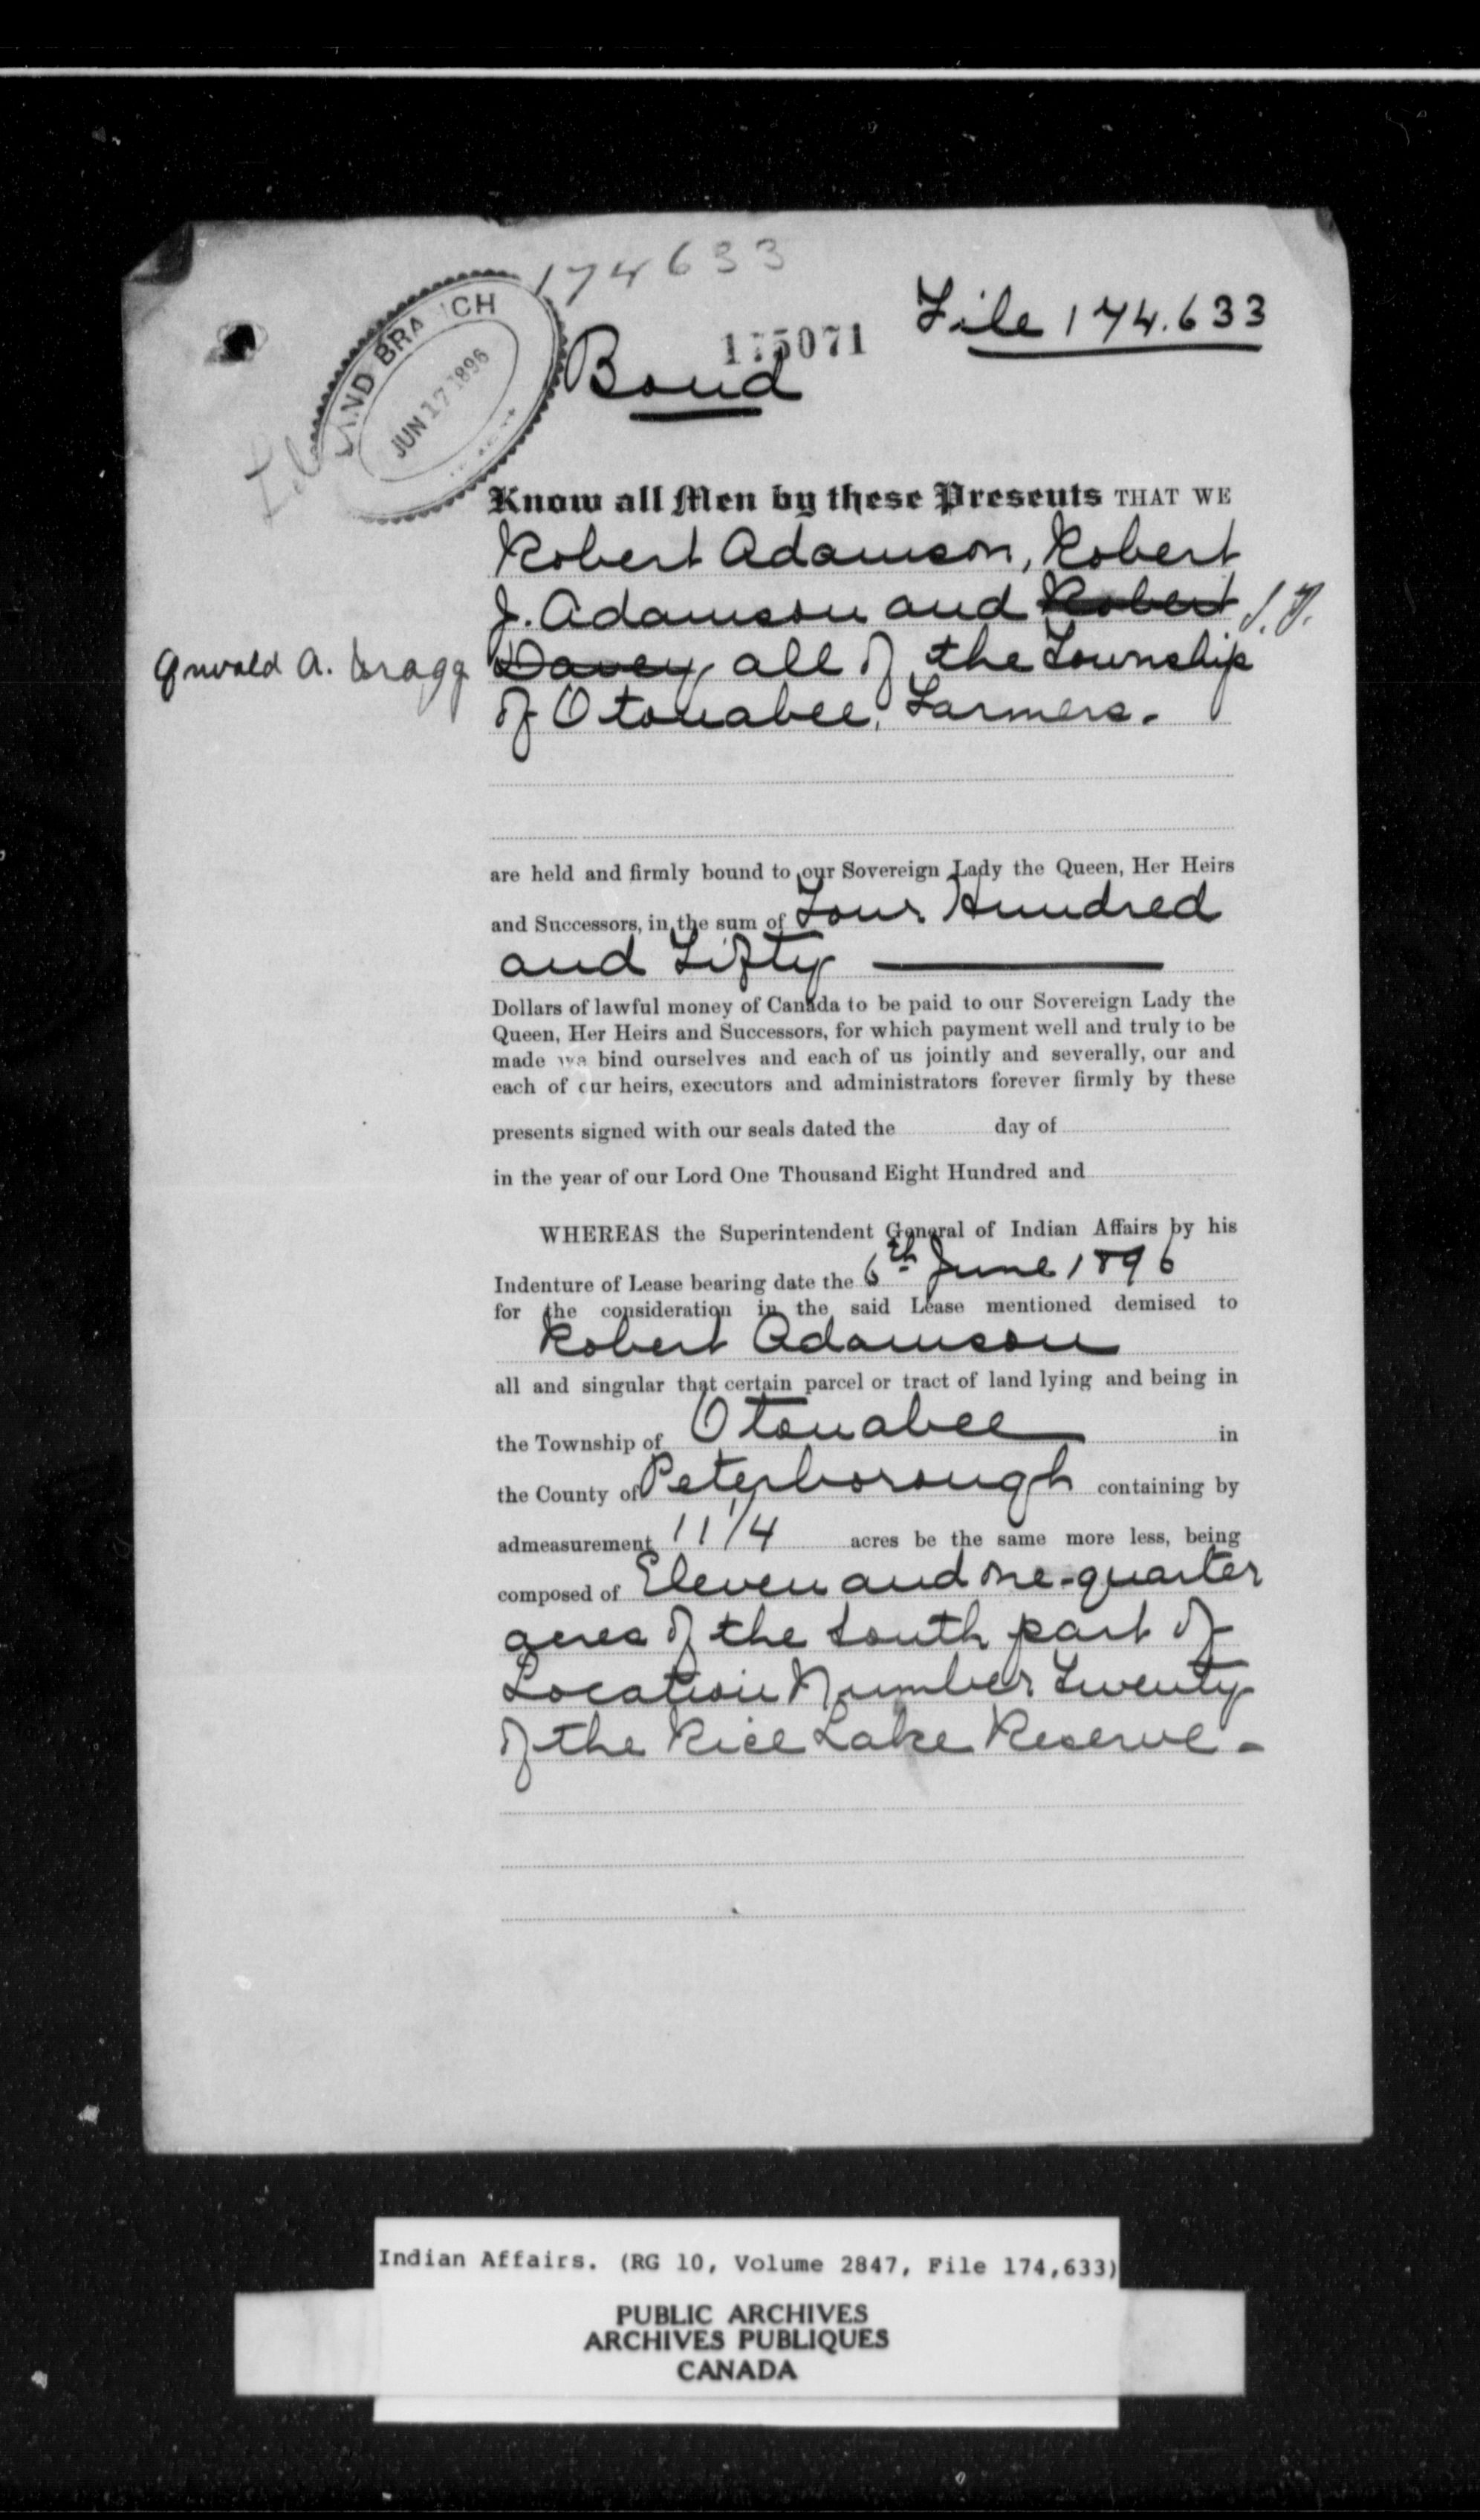 174633
File 174.633
LAND BRANCH
JUN 17 1896
175071
Bond
Know all Men by these Presents THAT WE
Robert Adamson, Robert
J. Adamson and Robert
A. Bragg Davey all of the Township
of Otonabee, Farmers.
are held and firmly bound to our Sovereign Lady the Queen, Her Heirs
and Successors, in the sum of Four Hundred
and Fifty
Dollars of lawful money of Canada to be paid to our Sovereign Lady the
Queen, Her Heirs and Successors, for which payment well and truly to be
made we bind ourselves and each of us jointly and severally, our and
each of our heirs, executors and administrators forever firmly by these
presents signed with our seals dated the day of
in the year of our Lord One Thousand Eight Hundred and
WHEREAS the Superintendent General of Indian Affairs by his
Indenture of Lease bearing date the 6th June 1896
for the consideration in the said Lease mentioned demised to
Robert Adamson
all and singular that certain parcel or tract of land lying and being in
the Township of Otonabee in
the County of Peterborough containing by
admeasurement 11 1/4 acres be the same more less, being
composed of Eleven and one-quarter
acres of the South part of
Location Number Twenty
of the Rice Lake Reserve.
Indian Affairs. (RG 10, Volume 2847, File 174,633)
PUBLIC ARCHIVES
ARCHIVES PUBLIQUES
CANADA